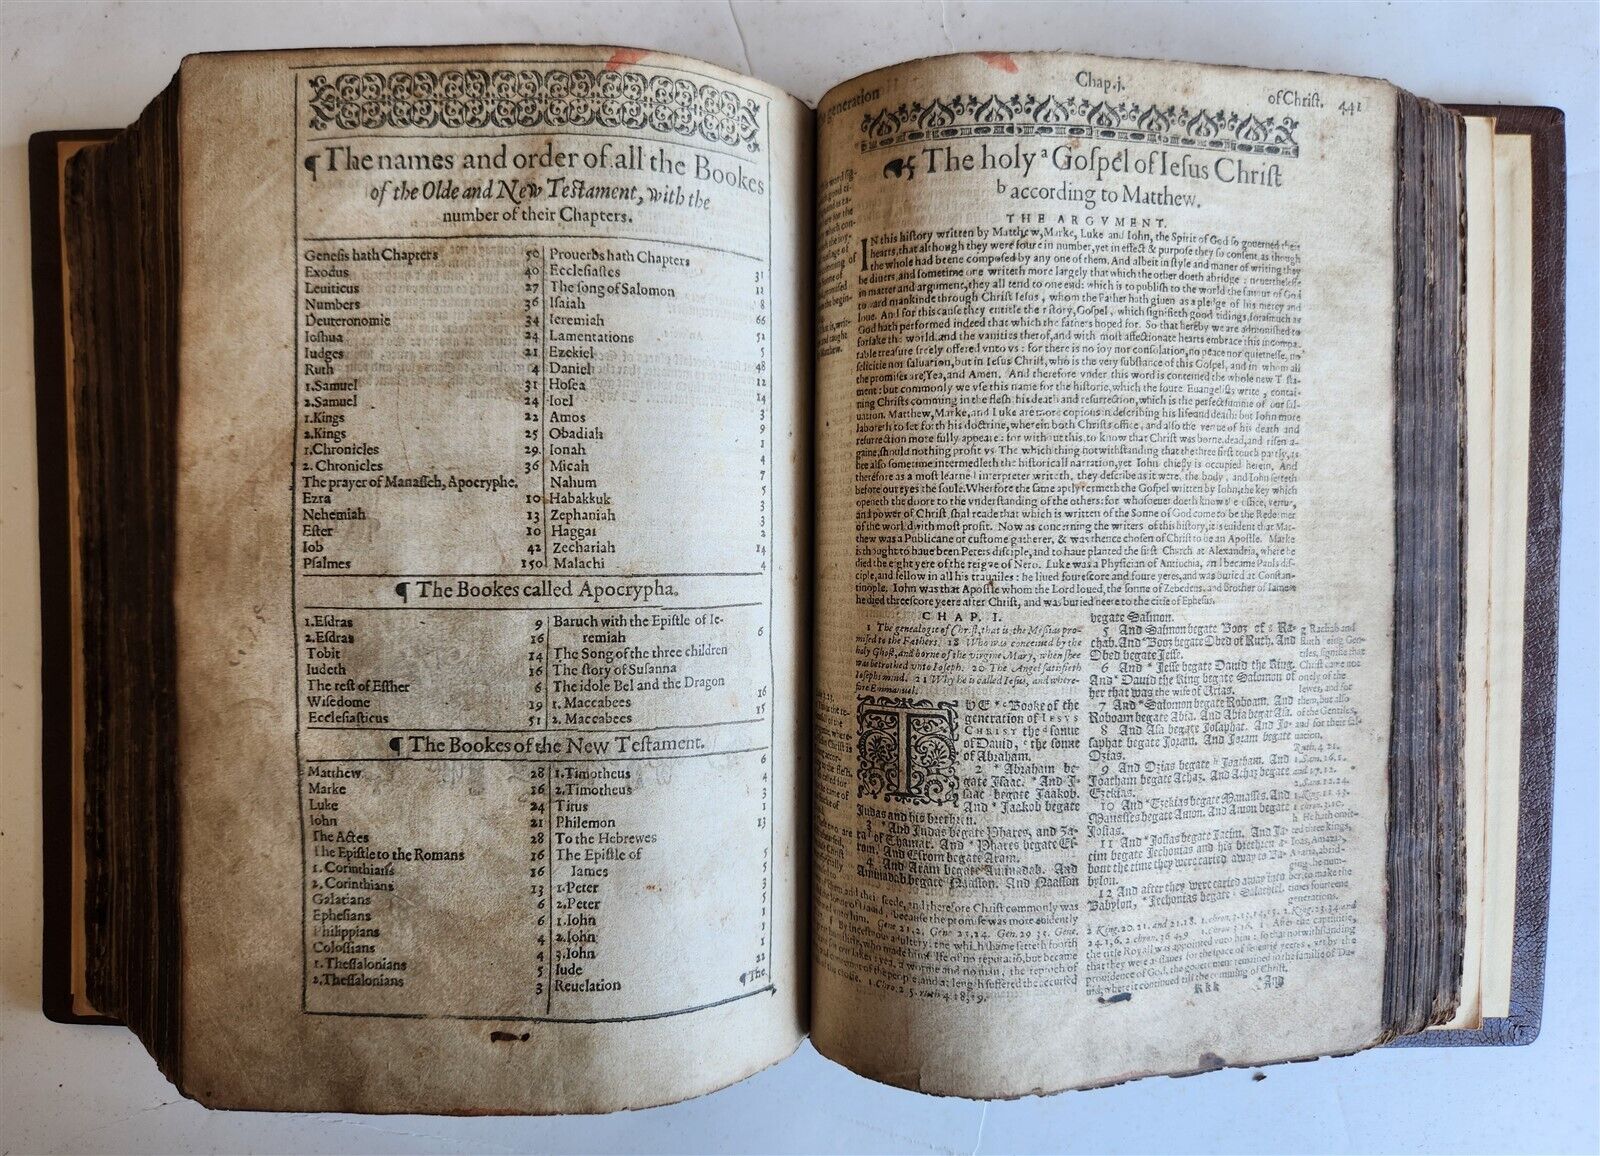 ¶ The names and order of all the Bookes
of the Olde and New Testament, with the
number of their Chapters.
Genesis hath Chapters 50
Exodus 40
Leuiticus 27
Numbers 36
Deuteronomie 34
Ioshua 24
Iudges 21
Ruth 4
1.Samuel 31
2.Samuel 24
1.Kings 22
2.Kings 25
1.Chronicles 29
2. Chronicles 36
The prayer of Manasseh, Apocryphe.
Ezra 10
Nehemiah 13
Ester 10
Iob 42
Psalmes 150
Prouerbs hath Chapters
Ecclesiastes 31
The song of Salomon 12
Isaiah 8
Ieremiah 66
Lamentations 52
Ezekiel 5
Daniel 48
Hosea 12
Ioel 14
Amos 3
Obadiah 9
Ionah 1
Micah 4
Nahum 7
Habakkuk 3
Zephaniah 3
Haggai 2
Zechariah 14
Malachi 4
¶ The Bookes called Apocrypha.
1.Esdras 9
2.Esdras 16
Tobit 14
Iudeth 16
The rest of Esther 6
Wisedome 19
Ecclesiasticus 51
Baruch with the Epistle of Ie-
remiah 6
The Song of the three children
The story of Susanna
The idole Bel and the Dragon
1. Maccabees 16
2. Maccabees 15
¶ The Bookes of the New Testament.
Matthew 28
Marke 16
Luke 24
Iohn 21
The Actes 28
The Epistle to the Romans 16
1. Corinthians 16
2. Corinthians 13
Galatians 6
Ephesians 6
Philippians 4
Colossians 4
1. Thessalonians 5
2.Thessalonians 3
6
1.Timotheus 4
2.Timotheus 3
Titus 1
Philemon 13
To the Hebrewes
The Epistle of 5
Iames 5
1.Peter 3
2.Peter 5
1.Iohn 1
2.Iohn 1
3.Iohn 1
Iude 22
Reuelation
¶ The
generation
Chap.j.
of Christ. 441
The holy a Gospel of Iesus Christ
b according to Matthew.
THE ARGVMENT.
IN this history written by Matthew, Marke, Luke and Iohn, the Spirit of God so gouerned their
hearts, that although they were foure in number, yet in effect & purpose they so consent, as though
the whole had beene composed by any one of them. And albeit in style and maner of writing they
be diuers, and sometime one writeth more largely that which the other doeth abridge: neuerthelesse
in matter and argument, they all tend to one end: which is to publish to the world the fauour of God
toward mankinde through Christ Iesus, whom the Father hath giuen as a pledge of his mercy and
loue. And for this cause they entitle their story, Gospel, which signifieth good tidings, forasmuch as
God hath performed indeed that which the fathers hoped for. So that hereby we are admonished to
forsake the world, and the vanities thereof, and with most affectionate hearts embrace this incompa-
rable treasure freely offered vnto vs: for there is no ioy nor consolation, no peace nor quietnesse, no
felicitie nor saluation, but in Iesus Christ, who is the very substance of this Gospel, and in whom all
the promises are Yea, and Amen. And therefore vnder this word is conteined the whole new Testa-
ment: but commonly we vse this name for the historie, which the foure Euangelists write, contai-
ning Christs comming in the flesh, his death and resurrection, which is the perfect summe of our sal-
uation. Matthew, Marke, and Luke are more copious in describing his life and death: but Iohn more
laboreth to set forth his doctrine, wherein both Christs office, and also the vertue of his death and
resurrection more fully appeare: for without this, to know that Christ was borne, dead, and risen a-
gaine, should nothing profit vs. The which thing notwithstanding that the three first touch partly, as
hee also sometime intermedleth the historicall narration, yet Iohn chiefly is occupied herein. And
therefore as a most learned interpreter writeth, they describe as it were, the body, and Iohn setteth
before our eyes the soule. Wherfore the same aptly termeth the Gospel written by Iohn, the key which
openeth the doore to the vnderstanding of the others: for whosoeuer doeth know the office, vertue,
and power of Christ, shal reade that which is written of the Sonne of God come to be the Redeemer
of the world with most profit. Now as concerning the writers of this history, it is euident that Mat-
thew was a Publicane or custome gatherer, & was thence chosen of Christ to be an Apostle. Marke
is thought to haue been Peters disciple, and to haue planted the first Church at Alexandria, where he
died the eight yere of the reigne of Nero. Luke was a Physician of Antiochia, and became Pauls dis-
ciple, and fellow in all his trauailes: he liued fourescore and foure yeres, and was buried at Constan-
tinople. Iohn was that Apostle whom the Lord loued, the sonne of Zebedeus, and brother of Iames:
he died threescore yeere after Christ, and was buried neere to the citie of Ephesus.
CHAP. I.
1 The genealogie of Christ, that is, the Messias pro-
mised to the Fathers. 18 Who was conceiued by the
holy Ghost, and borne of the virgine Mary, when shee
was betrothed vnto Ioseph. 20 The Angel satisfieth
Iosephs mind. 21 Why he is called Iesus, and where-
fore Emmanuel.
THE Booke of the
generation of IESVS
CHRIST the sonne
of Dauid, the sonne
of Abraham.
2 * Abraham be-
gate Isaac. * And I-
saac begate Iaakob.
And * Iaakob begate
Iudas and his brethren.
3 * And Iudas begate Phares, and Za-
ra of Thamar. And * Phares begate Es-
rom. And Esrom begate Aram.
4 And Aram begate Aminadab. And
Aminadab begate Naasson. And Naasson
begate Salmon.
5 And Salmon begate Booz of Ra-
chab. And * Booz begate Obed of Ruth. And
Obed begate Iesse.
6 And * Iesse begate Dauid the King.
And * Dauid the King begate Salomon of
her that was the wife of Urias.
7 And * Salomon begate Roboam. And
Roboam begate Abia. And Abia begat Asa.
8 And Asa begate Iosaphat. And Io-
saphat begate Joram. And Joram begate
Ozias.
9 And Ozias begate Joatham. And
Joatham begate Achaz. And Achaz begate
Ezekias.
10 And * Ezekias begate Manasses. And
Manasses begate Amon. And Amon begate
Josias.
11 And * Josias begate Jacim. And Ja-
cim begate Jechonias and his brethren a-
bout the time they were caried away to Ba-
bylon.
12 And after they were caried away into
Babylon, * Jechonias begate Salathiel.
g Rachab and
Ruth being Gen-
tiles, signifie that
Christ came not
onely of the
Iewes, and for
them, but also
of the Gentiles,
and for their sal-
uation.
Ruth. 4 21.
h He hath omit-
ted three kings,
Ioas, Amazia,
Azaria, abrid-
ging the num-
ber, to make the
times fourteene
generations.
After the captiuitie,
the title Royall was appointed vnto him: so that notwithstanding
that they were as slaues for the space of seuentie yeeres, yet by the
prouidence of God, the gouernment remained in the familie of Da-
uid, where it continued till the comming of Christ.
Kkk And